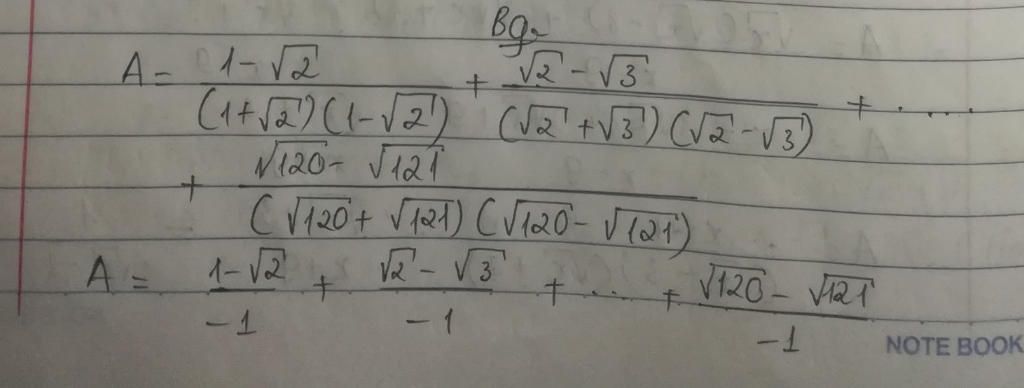 Bg
A = \frac{1 - \sqrt{2}}{(1 + \sqrt{2})(1 - \sqrt{2})} + \frac{\sqrt{2} - \sqrt{3}}{(\sqrt{2} + \sqrt{3})(\sqrt{2} - \sqrt{3})} + .....
+ \frac{\sqrt{120} - \sqrt{121}}{(\sqrt{120} + \sqrt{121})(\sqrt{120} - \sqrt{121})}
A = \frac{1 - \sqrt{2}}{-1} + \frac{\sqrt{2} - \sqrt{3}}{-1} + ... + \frac{\sqrt{120} - \sqrt{121}}{-1}
NOTE BOOK